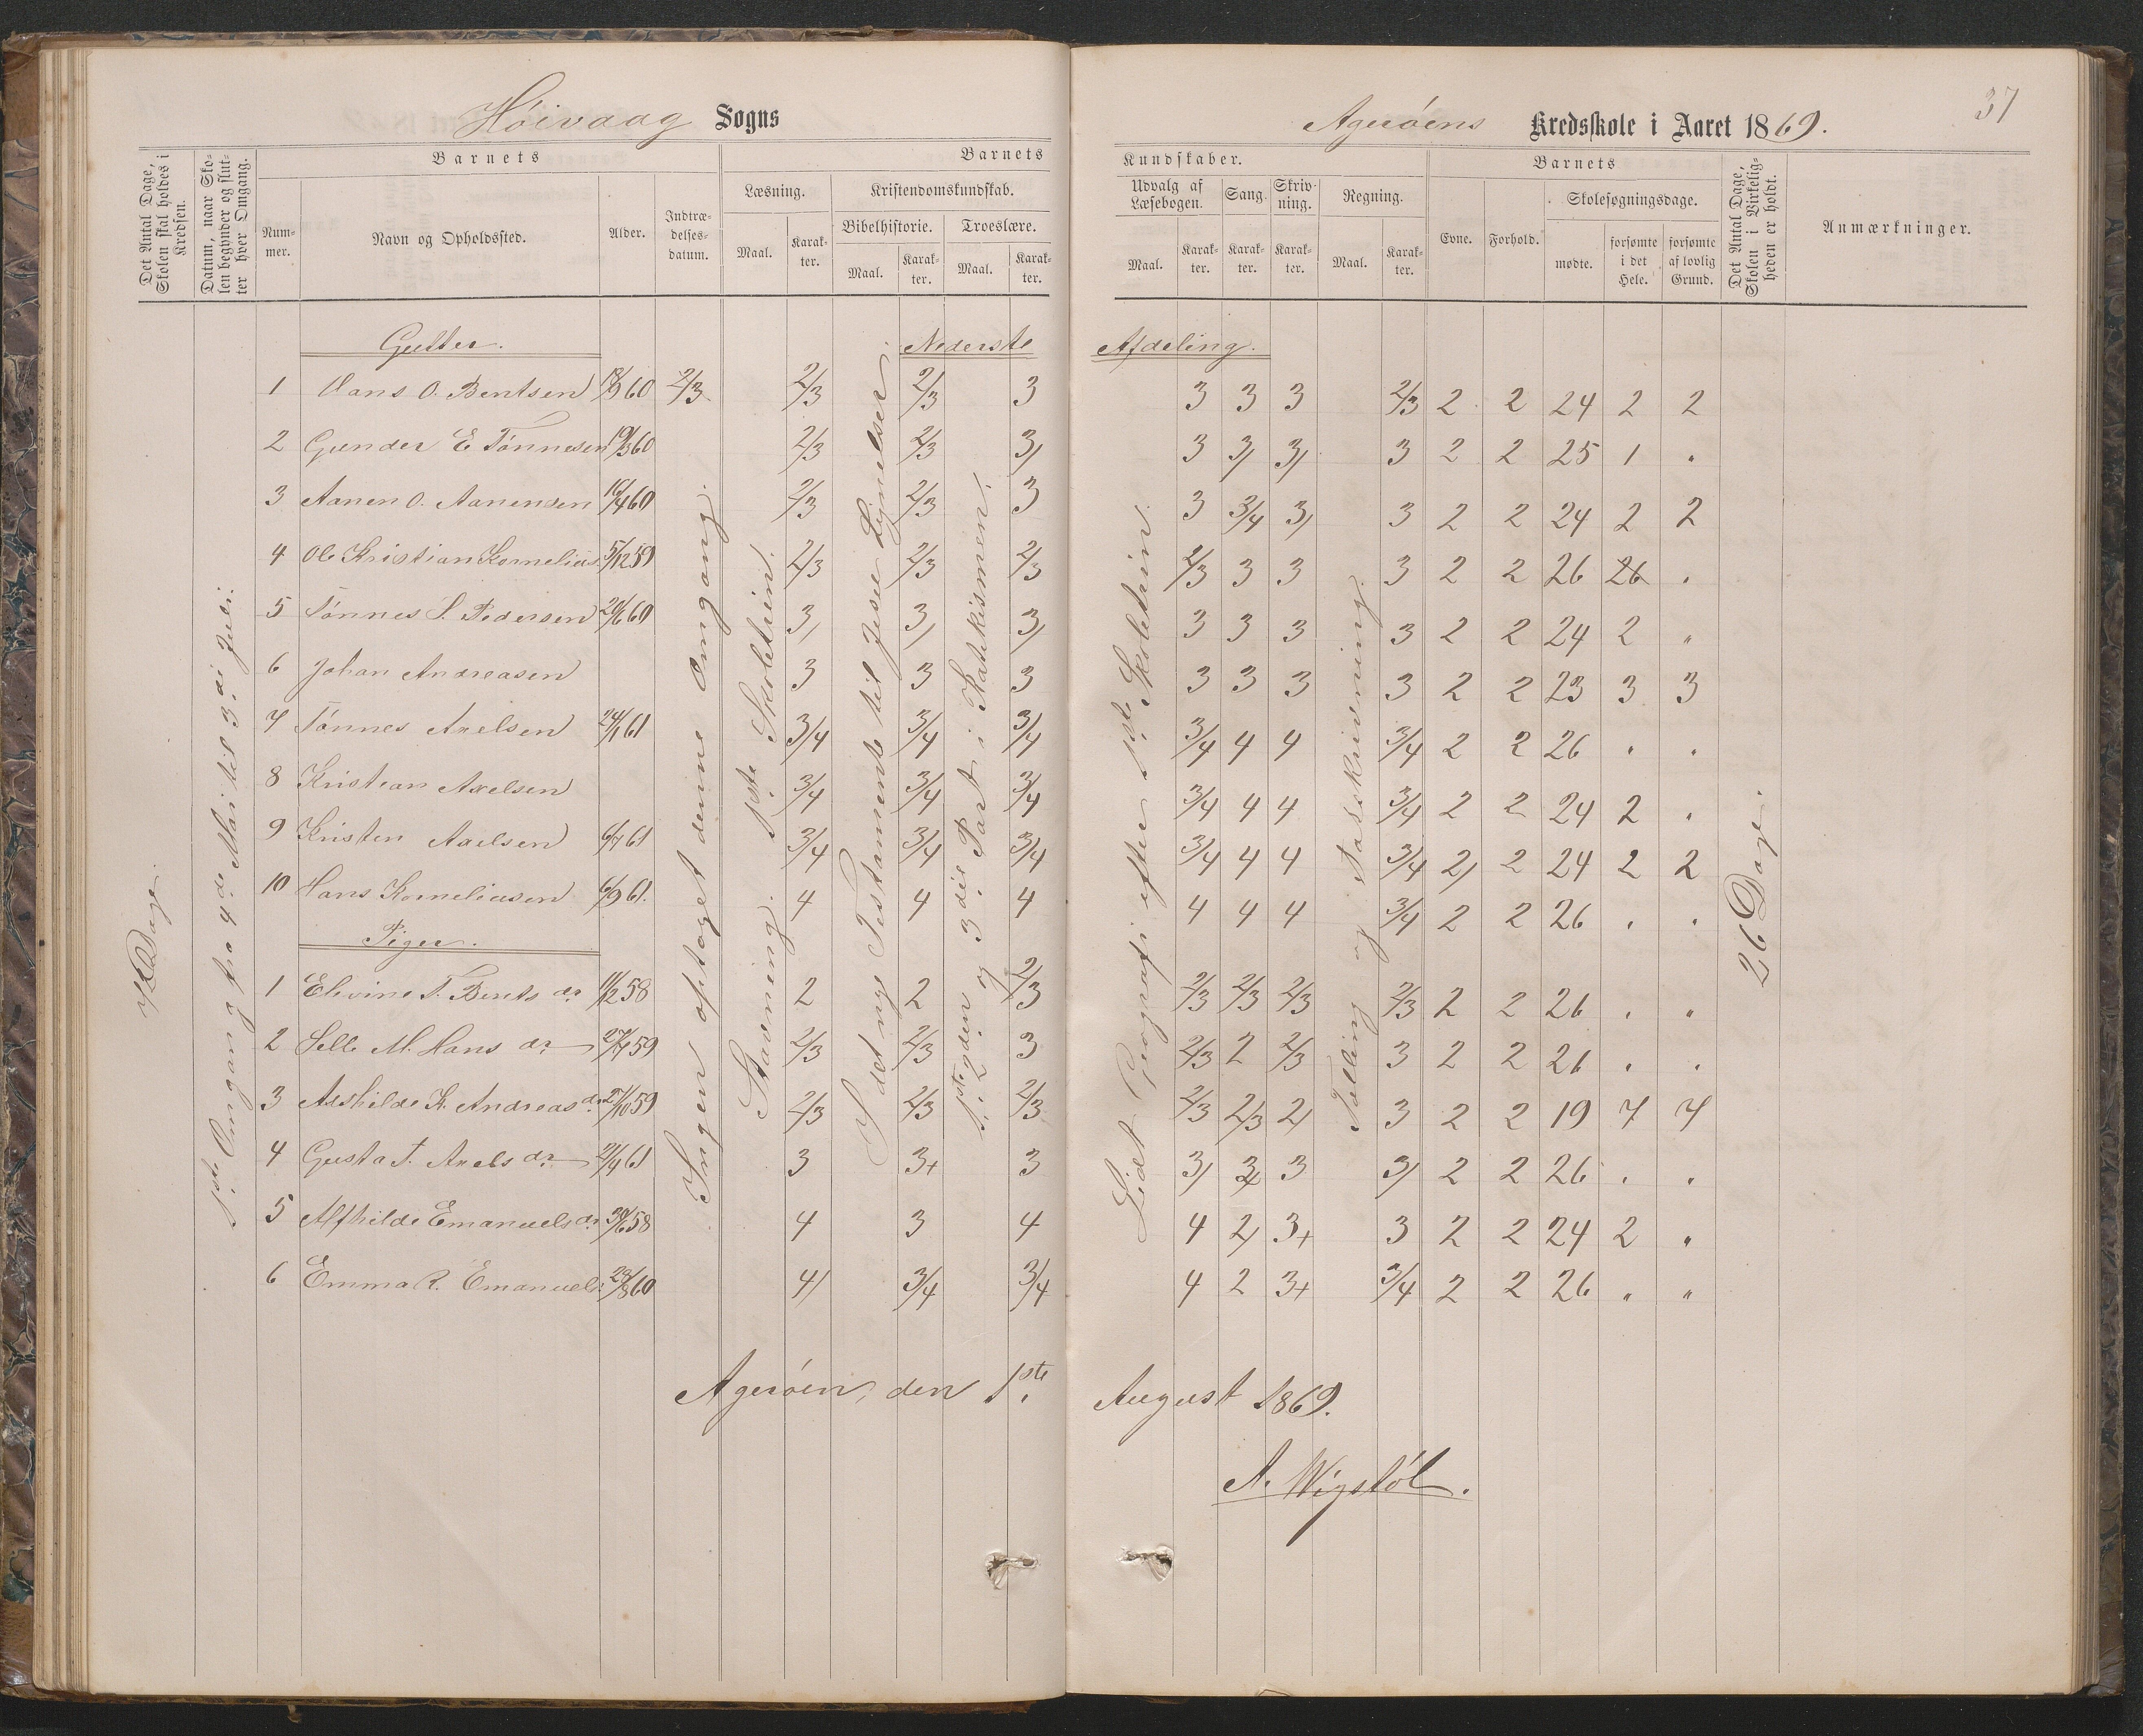 Høivaag Sogns
Agerøens Kredsskole i Aaret 1869.
37
Det Antal Dage, Skolen skal holdes i Kredsen.
Datum, naar Skolen begynder og slutter hver Omgang.
Barnets
Nummer.
Navn og Opholdssted.
Alder.
Indtrædelsesdatum.
Barnets
Læsning.
Maal.
Karakter.
Kristendomskundskab.
Bibelhistorie.
Maal.
Karakter.
Troeslære.
Maal.
Karakter.
Kundskaber.
Udvalg af Læsebogen.
Maal.
Karakter.
Sang.
Karakter.
Skrivning.
Karakter.
Regning.
Maal.
Karakter.
Barnets
Evne.
Forhold.
Skolesøgningsdage.
mødte.
forsømte i det Hele.
forsømte af lovlig Grund.
Det Antal Dage, Skolen i Virkeligheden er holdt.
Anmærkninger.
Dage
1ste Omgang fra 4de Mai til 3die Juli.
Ingen optaget denne Omgang.
Stavning. 1ste Skoletrin.
I det nye Testamente til Jesu Lignelser.
1ste, 2den og 3die Part i Katekismen.
Lidt Geografi efter 1ste Skoletrin.
Tælling og Talskrivning.
26 Dage.
Gutter. Nederste Afdeling.
1 Hans O. Bentsen 18/9 60 2/3 2/3 2/3 3 3 3 3 2/3 2 2 24 2 2
2 Gunder E Tønnesen 19/3 60 2/3 2/3 3/ 3 3/ 3/ 3 2 2 25 1 "
3 Aanen O. Aanensen 16/4 60 2/3 2/3 3 3 3/4 3/ 3 2 2 24 2 2
4 Ole Kristian Kornelius. 5/12 59 2/3 2/3 2/3 2/3 3 3 3 2 2 26 26 "
5 Tønnes S. Pedersen 20/6 60 3/ 3/ 3/ 3 3 3 3 2 2 24 2 "
6 Johan Andreasen 3 3 3 3 3 3 3 2 2 23 3 3
7 Tønnes Axelsen 24/1 61 3/4 3/4 3/4 3/4 4 4 3/4 2 2 26 " "
8 Kristian Axelsen 3/4 3/4 3/4 3/4 4 4 3/4 2 2 24 2 "
9 Kristen Axelsen 6/7 61 3/4 3/4 3/4 3/4 4 4 3/4 2/ 2 24 2 2
10 Hans Korneliusen 6/9 61. 4 4 4 4 4 4 3/4 2 2 26 " "
Piger.
1 Elevine T. Bents dr 11/12 58 2 2 2/3 2/3 2/3 2/3 2/3 2 2 26 " "
2 Selle M. Hans dr 27/7 59 2/3 2/3 3 2/3 2 2/3 3 2 2 26 " "
3 Aashilde K. Andreas dr 21/10 59 2/3 2/3 2/3 2/3 2/3 2/ 3 2 2 19 7 7
4 Gusta T. Axels dr 21/4 61 3 3+ 3 3/ 3 3/ 2 2 26 " "
5 Alfhilde Emanuels dr 30/6 58 4 3 4 4 2/ 3+ 3 2 2 24 2 "
6 Emma R. Emanuels. 28/8 60 4/ 3/4 3/4 4 2 3+ 3/4 2 2 26 " "
Agerøen, den 1ste August 1869.
A. Wigstøl.